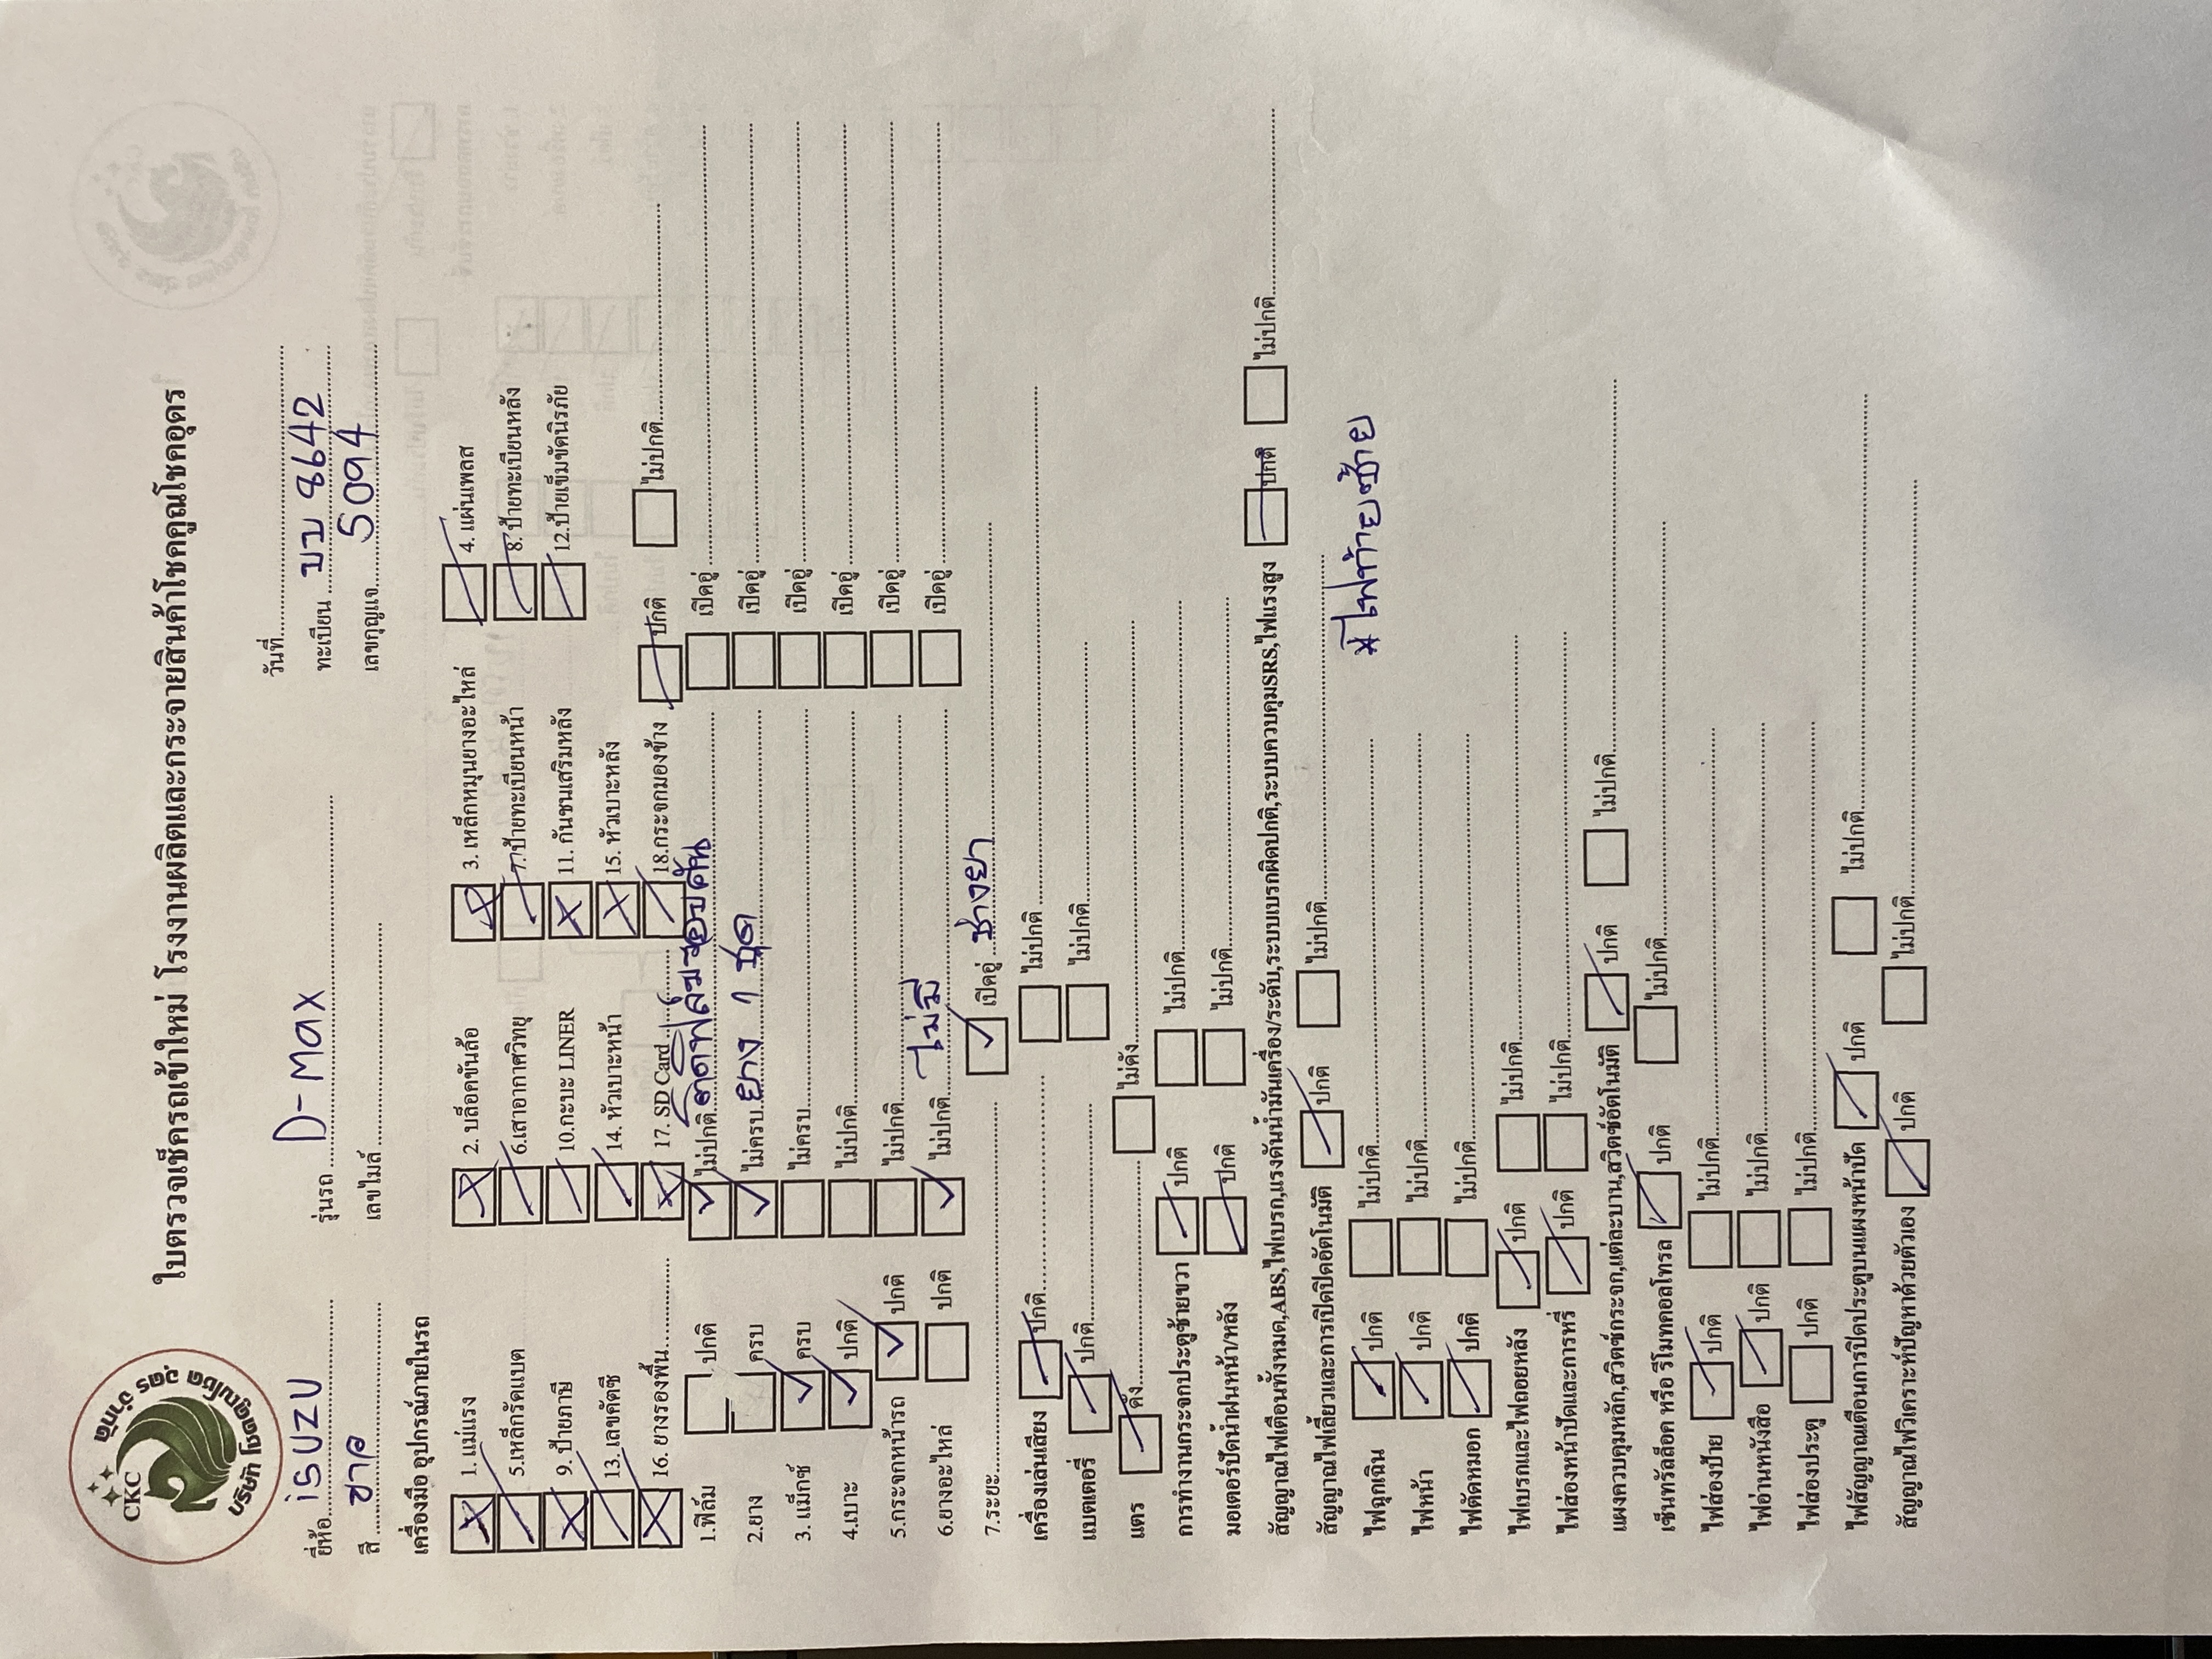 CKC
บริษัท โชคคูณโชค อุดร จำกัด
ใบตรวจเช็ครถเข้าใหม่ โรงงานผลิตและกระจายสินค้าโชคคูณโชคอุดร
วันที่
ยี่ห้อ isuzu รุ่นรถ D-max ทะเบียน บบ 8642
สี ขาว เลขไมล์ เลขกุญแจ 5094
เครื่องมือ อุปกรณ์ภายในรถ
1. แม่แรง 2. บล็อคขันล้อ 3. เหล็กหมุนยางอะไหล่ 4. แผ่นเพลส
5.เหล็กรัดแบต 6.เสาอากาศวิทยุ 7.ป้ายทะเบียนหน้า 8.ป้ายทะเบียนหลัง
9. ป้ายภาษี 10.กะบะ LINER 11. กันชนเสริมหลัง 12.ป้ายเข็มขัดนิรภัย
13. เลขคัดซี 14. หัวเบาะหน้า 15. หัวเบาะหลัง
16. ยางรองพื้น 17. SD Card 18.กระจกมองข้าง ปกติ ไม่ปกติ
1.ฟิล์ม ปกติ ไม่ปกติ ติดฟิล์มรอบคัน เปิดอู่
2.ยาง ครบ ไม่ครบ ยาง 1 ชุด เปิดอู่
3. แม็กซ์ ครบ ไม่ครบ เปิดอู่
4.เบาะ ปกติ ไม่ปกติ เปิดอู่
5.กระจกหน้ารถ ปกติ ไม่ปกติ เปิดอู่
6.ยางอะไหล่ ปกติ ไม่ปกติ ไม่มี เปิดอู่
7.ระยะ เปิดอู่ ช่างยา
เครื่องเล่นเสียง ปกติ ไม่ปกติ
แบตเตอรี่ ปกติ ไม่ปกติ
แตร ดัง ไม่ดัง
การทำงานกระจกประตูซ้ายขวา ปกติ ไม่ปกติ
มอเตอร์ปัดน้ำฝนหน้า/หลัง ปกติ ไม่ปกติ
สัญญาณไฟเตือนทั้งหมด,ABS,ไฟเบรก,แรงดันน้ำมันเครื่อง/ระดับ,ระบบเบรกผิดปกติ,ระบบควบคุมSRS,ไฟแรงสูง ปกติ ไม่ปกติ
สัญญาณไฟเลี้ยวและการเปิดปิดอัตโนมัติ ปกติ ไม่ปกติ
ไฟฉุกเฉิน ปกติ ไม่ปกติ * ไฟท้ายซ้าย
ไฟหน้า ปกติ ไม่ปกติ
ไฟตัดหมอก ปกติ ไม่ปกติ
ไฟเบรกและไฟถอยหลัง ปกติ ไม่ปกติ
ไฟส่องหน้าปัดและการหรี่ ปกติ ไม่ปกติ
แผงควบคุมหลัก,สวิตซ์กระจก,แต่ละบาน,สวิตซ์อัตโนมัติ ปกติ ไม่ปกติ
เซ็นทรัลล็อค หรือ รีโมทคอลโทรล ปกติ ไม่ปกติ
ไฟส่องป้าย ปกติ ไม่ปกติ
ไฟอ่านหนังสือ ปกติ ไม่ปกติ
ไฟส่องประตู ปกติ ไม่ปกติ
ไฟสัญญาณเตือนการเปิดประตูบนแผงหน้าปัด ปกติ ไม่ปกติ
สัญญาณไฟวิเคราะห์ปัญหาด้วยตัวเอง ปกติ ไม่ปกติ